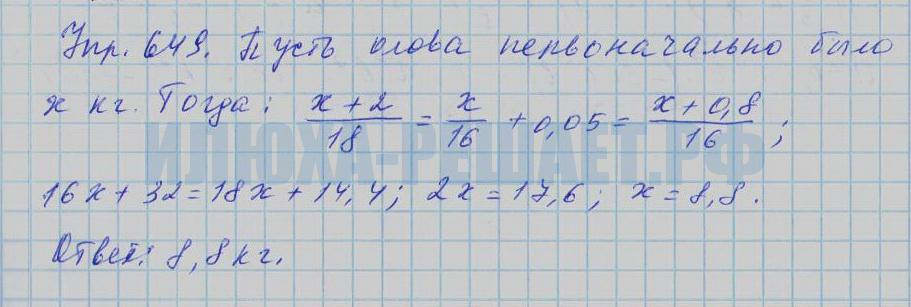 Упр. 649. Пусть олова первоначально было
x кг. Тогда: (x + 2)/18 = x/16 + 0,05 = (x + 0,8)/16 ;
16x + 32 = 18x + 14,4; 2x = 17,6; x = 8,8.
Ответ: 8,8 кг.
ИЛЮХА-РЕШАЕТ.РФ